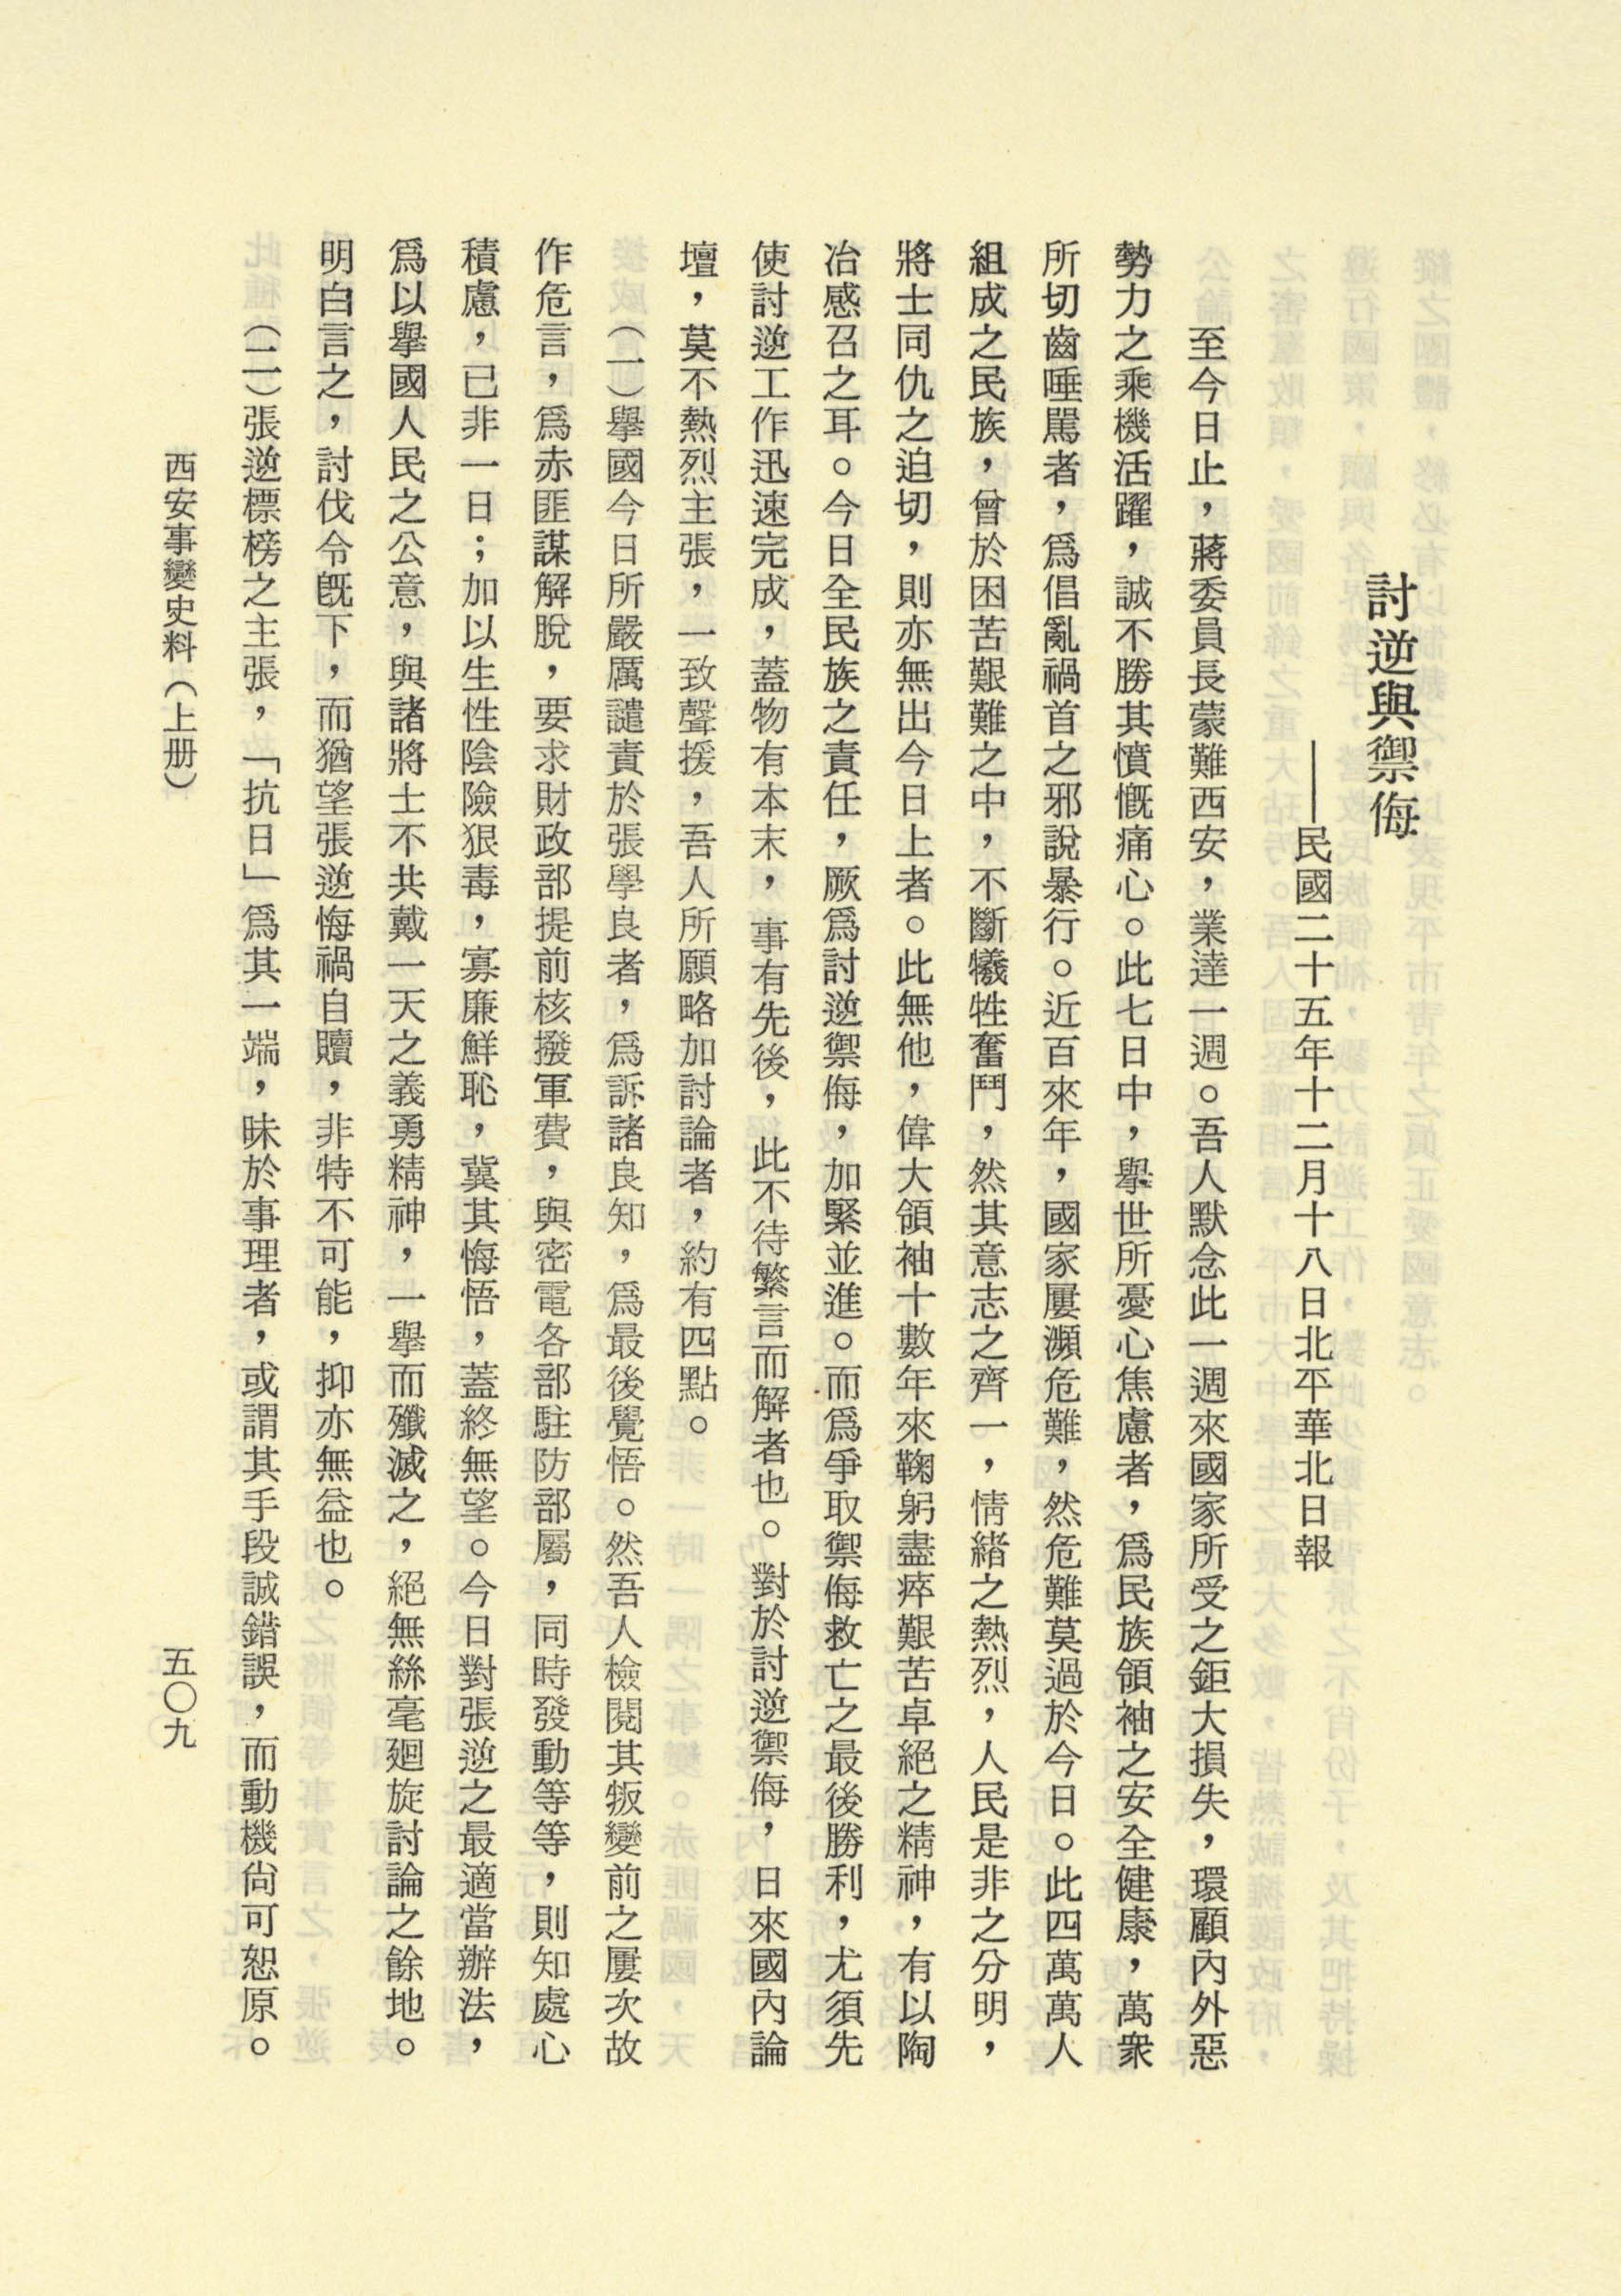 討逆與禦侮
——民國二十五年十二月十八日北平華北日報
至今日止，蔣委員長蒙難西安，業達一週。吾人默念此一週來國家所受之鉅大損失，環顧內外惡
勢力之乘機活躍，誠不勝其憤慨痛心。此七日中，舉世所憂心焦慮者，爲民族領袖之安全健康，萬衆
所切齒唾罵者，爲倡亂禍首之邪說暴行。近百來年，國家屢瀕危難，然危難莫過於今日。此四萬萬人
組成之民族，曾於困苦艱難之中，不斷犧牲奮鬥，然其意志之齊一，情緒之熱烈，人民是非之分明，
將士同仇之迫切，則亦無出今日上者。此無他，偉大領袖十數年來鞠躬盡瘁艱苦卓絕之精神，有以陶
冶感召之耳。今日全民族之責任，厥爲討逆禦侮，加緊並進。而爲爭取禦侮救亡之最後勝利，尤須先
使討逆工作迅速完成，蓋物有本末，事有先後，此不待繁言而解者也。對於討逆禦侮，日來國內論
壇，莫不熱烈主張，一致聲援，吾人所願略加討論者，約有四點。
（一）舉國今日所嚴厲譴責於張學良者，爲訴諸良知，爲最後覺悟。然吾人檢閱其叛變前之屢次故
作危言，爲赤匪謀解脫，要求財政部提前核撥軍費，與密電各部駐防部屬，同時發動等等，則知處心
積慮，已非一日；加以生性陰險狠毒，寡廉鮮恥，冀其悔悟，蓋終無望。今日對張逆之最適當辦法，
爲以舉國人民之公意，與諸將士不共戴一天之義勇精神，一舉而殲滅之，絕無絲毫廻旋討論之餘地。
明白言之，討伐令既下，而猶望張逆悔禍自贖，非特不可能，抑亦無益也。
（二）張逆標榜之主張，「抗日」爲其一端，昧於事理者，或謂其手段誠錯誤，而動機尙可恕原。
西安事變史料（上册）
五〇九